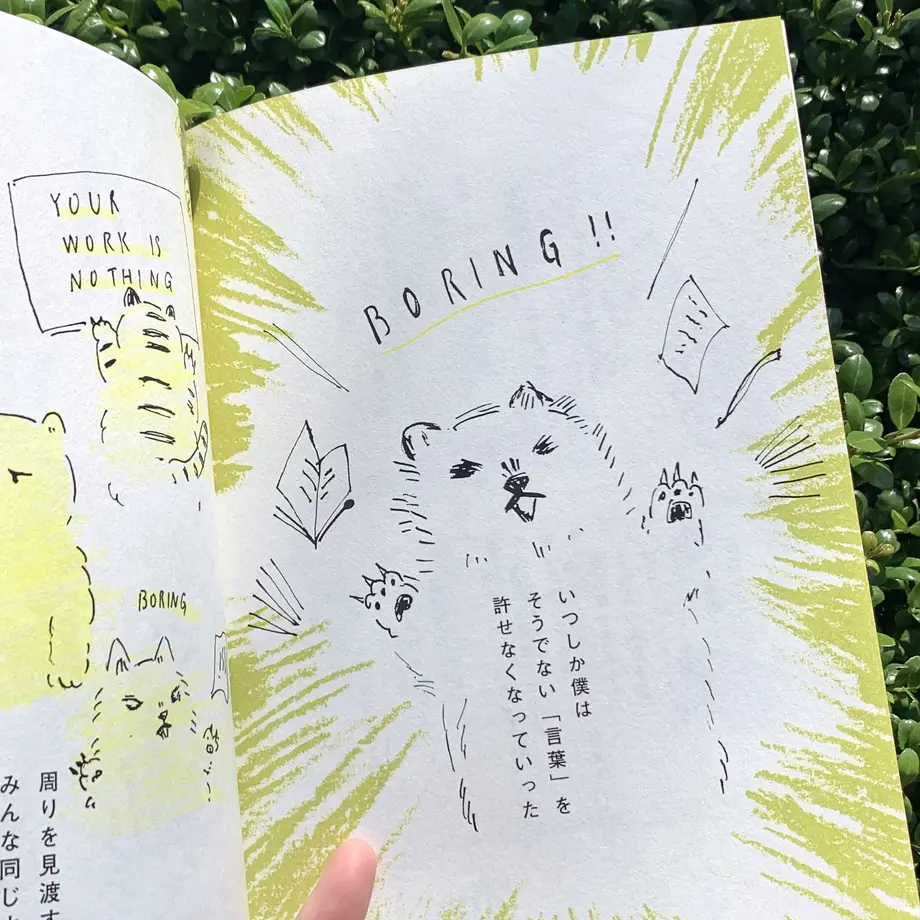 YOUR
WORK IS
NOTHING
BORING
周りを見渡す
みんな同じ
BORING!!
いつしか僕は
そうでない「言葉」を
許せなくなっていった